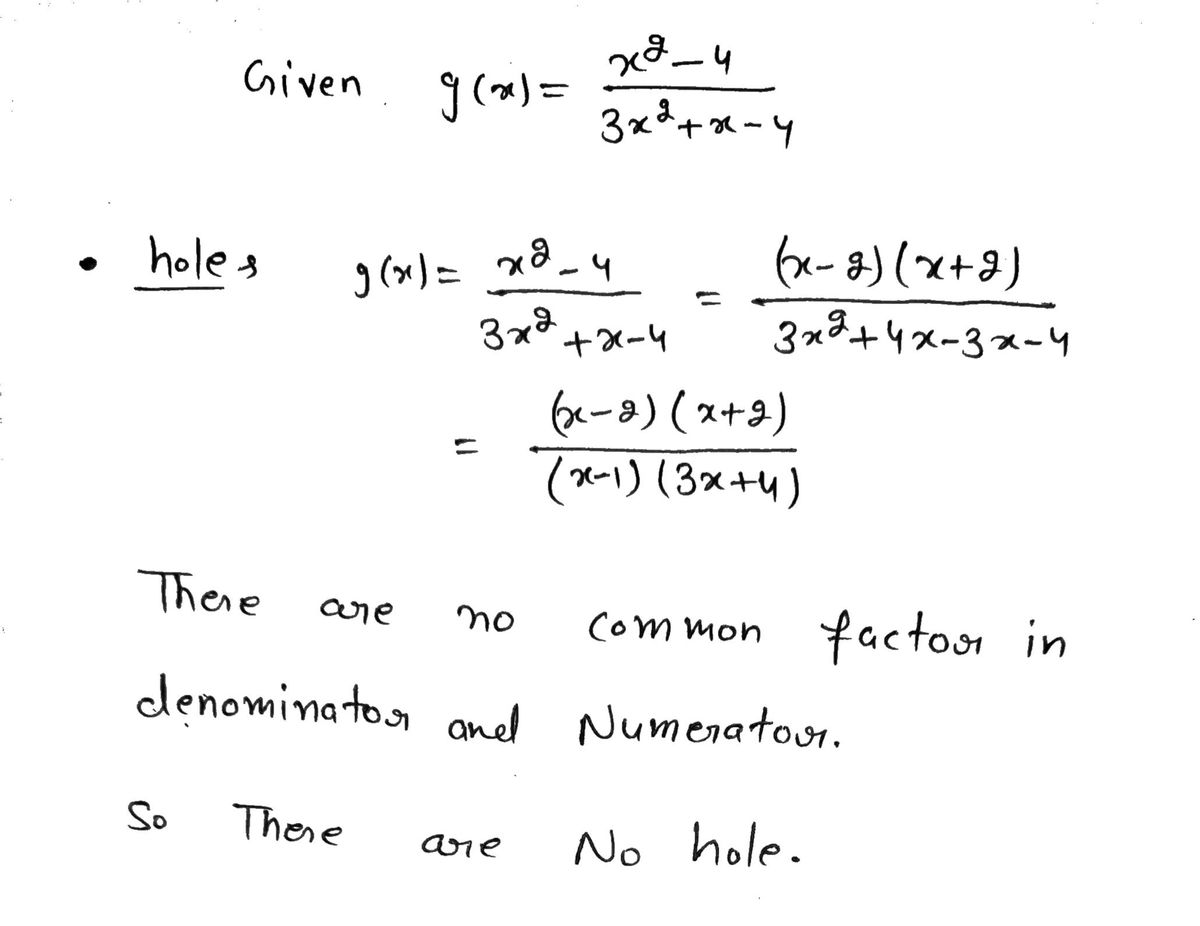 Given g(x) = x²-4 / 3x²+x-4
• holes g(x) = x²-4 / 3x²+x-4 = (x-2)(x+2) / 3x²+4x-3x-4
= (x-2)(x+2) / (x-1)(3x+4)
There are no common factor in
denominator and Numerator.
So There are No hole.